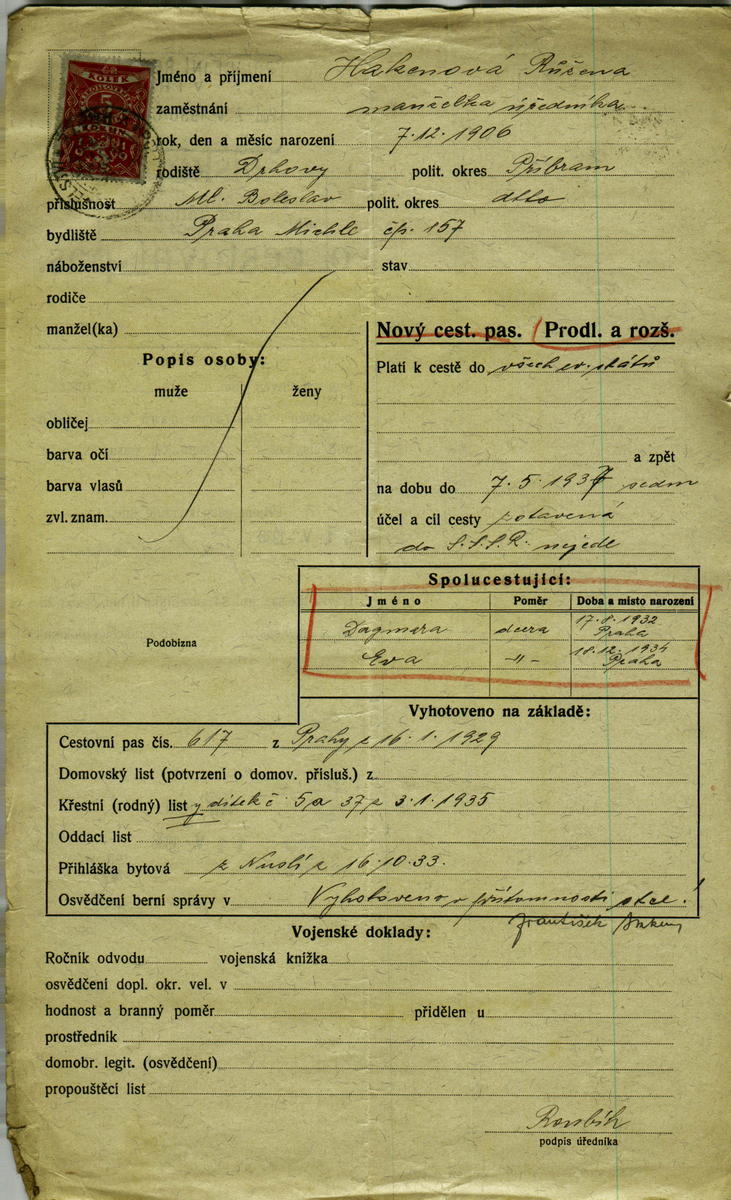 KOLEK
5
Jméno a příjmení Hakenová Růžena
zaměstnání manželka úředníka
rok, den a měsíc narození 7.12.1906
rodiště Drhovy polit. okres Příbram
příslušnost Ml. Boleslav polit. okres dtto
bydliště Praha Michle čp. 157
náboženství stav
rodiče
manžel(ka)
Nový cest. pas. Prodl. a rozš.
Popis osoby:
muže ženy
Platí k cestě do všech ev. států
obličej
barva očí
a zpět
barva vlasů
na dobu do 7.5.1937 sedm
zvl. znam.
účel a cíl cesty zotavená
do S.S.S.R. nejede
Spolucestující:
Jméno Poměr Doba a místo narození
Dagmara dcera 17.8.1932 Praha
Eva -"- 18.12.1934 Praha
Podobizna
Vyhotoveno na základě:
Cestovní pas čís. 617 z Prahy z 16.1.1929
Domovský list (potvrzení o domov. přísluš.) z
Křestní (rodný) list y dítek č 5a 37 z 3.1.1935
Oddací list
Přihláška bytová z Nuslí z 16.10.33.
Osvědčení berní správy v Vyhotoveno v přítomnosti
František
Vojenské doklady:
Ročník odvodu vojenská knížka
osvědčení dopl. okr. vel. v
hodnost a branný poměr přidělen u
prostředník
domobr. legit. (osvědčení)
propouštěcí list
Roubík
podpis úředníka